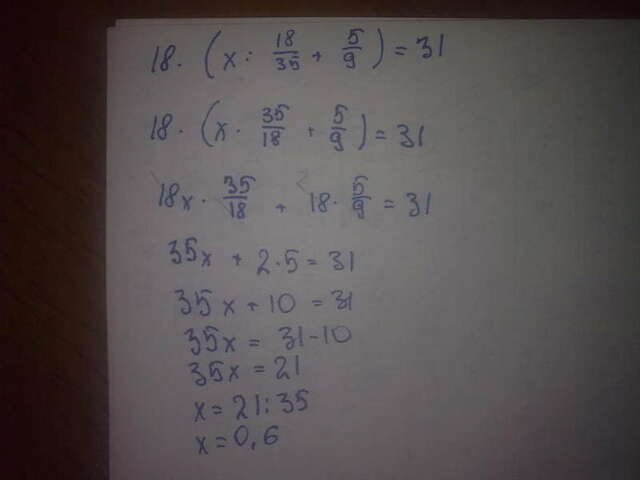 18 · (x : 18/35 + 5/9) = 31
18 · (x · 35/18 + 5/9) = 31
18x · 35/18 + 18 · 5/9 = 31
35x + 2·5 = 31
35x + 10 = 31
35x = 31-10
35x = 21
x = 21:35
x = 0,6